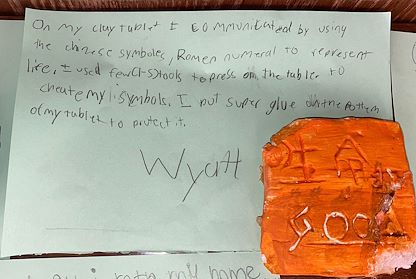 On my clay tablet I communicated by using
the chinese symboles, Romen numeral to represent
life. I used few tools to press on the tablet to
create my symbols. I put super glue on the bottom
of my tablet to protect it.
Wyatt
命
GOOD
my name